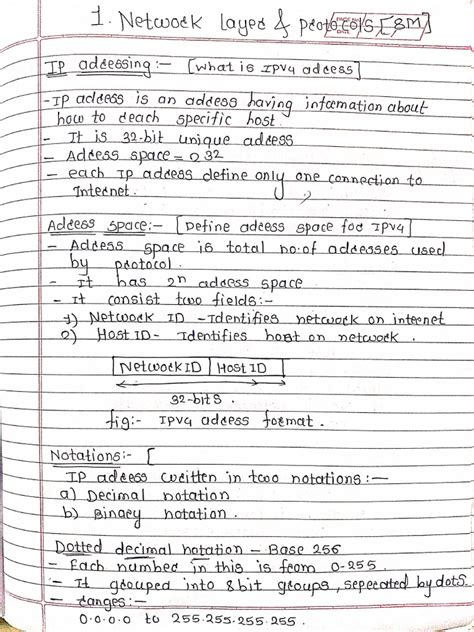 1. Network layer & protocols [8M]
IP addressing:- [what is IPV4 address]
- IP address is an address having information about
how to reach specific host.
- It is 32-bit unique address
- Address space = 2 32
- each IP address define only one connection to
Internet.
Address space:- [Define address space for IPV4]
- Address space is total no. of addresses used
by protocol.
- It has 2n address space
- It consist two fields:-
1) Network ID - Identifies network on internet
2) Host ID - Identifies host on network.
Network ID Host ID
32-bits.
fig:- IPV4 address format.
Notations:- [
IP address written in two notations:-
a) Decimal notation
b) Binary notation.
Dotted decimal notation - Base 256
- Each number in this is from 0-255.
- It grouped into 8bit groups, seperated by dots.
- ranges:-
0.0.0.0 to 255.255.255.255.